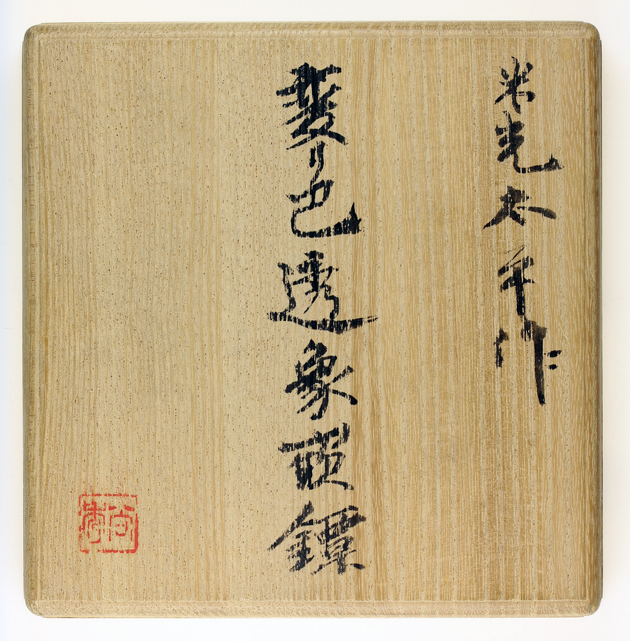 米光太平作
變り巴透象嵌鐔